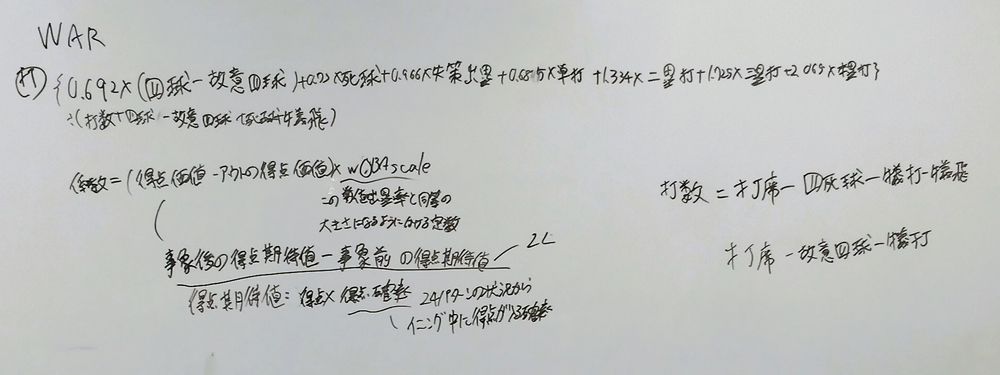 WAR
打 {0.692×(四球-故意四球)+0.73×死球+0.966×失策出塁+0.8675×単打+1.334×二塁打+1.725×三塁打+2.065×本塁打}
÷(打数+四球-故意四球+死球+犠飛)
係数=(得点価値-アウトの得点価値)×wOBA scale
この数値出塁率と同等の
大きさになるようにかける定数
打数=打席-四死球-犠打-犠飛
事象後の得点期待値-事象前の得点期待値
打席-故意四球-犠打
得点期待値=得点×得点確率
24パターンの状況から
イニング中に得点が入る確率